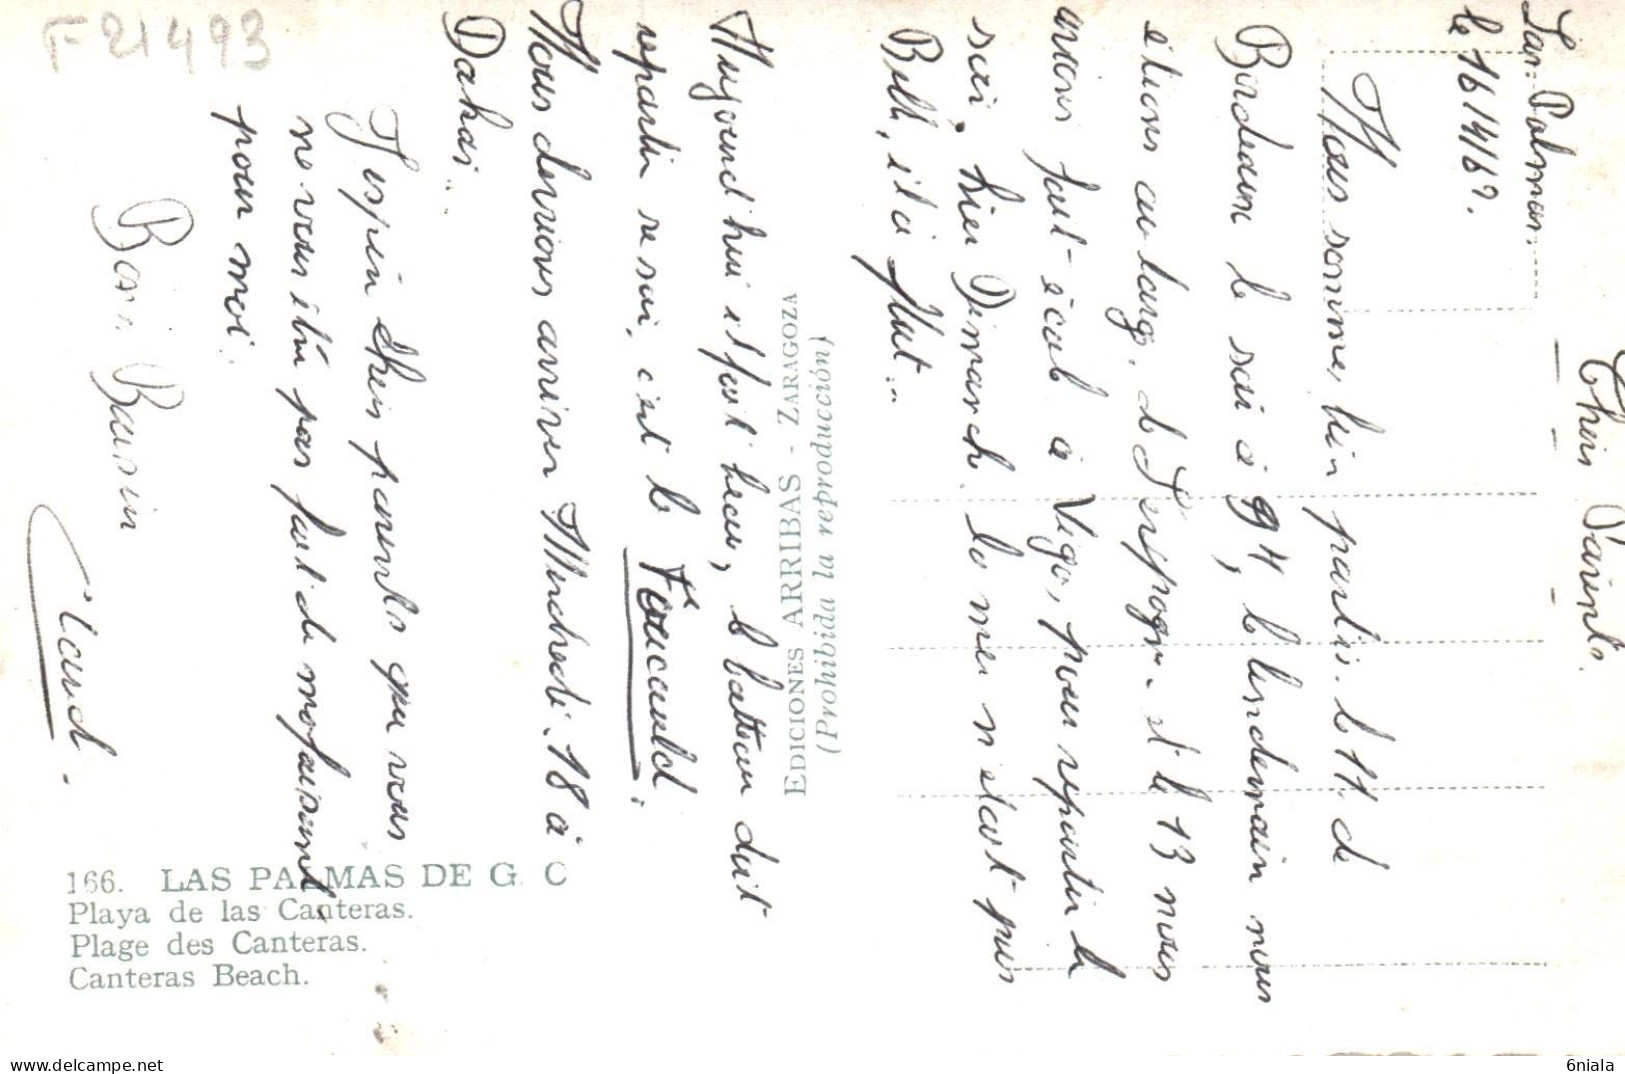 F 21493
Las Palmas.
le 16/4/62.
Chers Parents.
Nous sommes bien partis le 11. de
Bordeaux le soir à 9H, le lendemain nous
étions au large de l'Espagne et le 13 nous
avions fait escale à Vigo, pour repartir le
soir, hier Dimanche la mer n'était pas
Belle, il a plut..
Aujourd'hui il fait beau, le batteau doit
repartir ce soir, c'est le Foucauld.
Nous devrions arriver Mercredi 18 à
Dakar..
J'espère chers parents que vous
ne vous êtes pas fait de mauvais sang
pour moi.
Bons Baisers
Claud.
EDICIONES ARRIBAS - ZARAGOZA
(Prohibida la reproducción)
166. LAS PALMAS DE G. C
Playa de las Canteras.
Plage des Canteras.
Canteras Beach.
https://www.delcampe.net
6niala